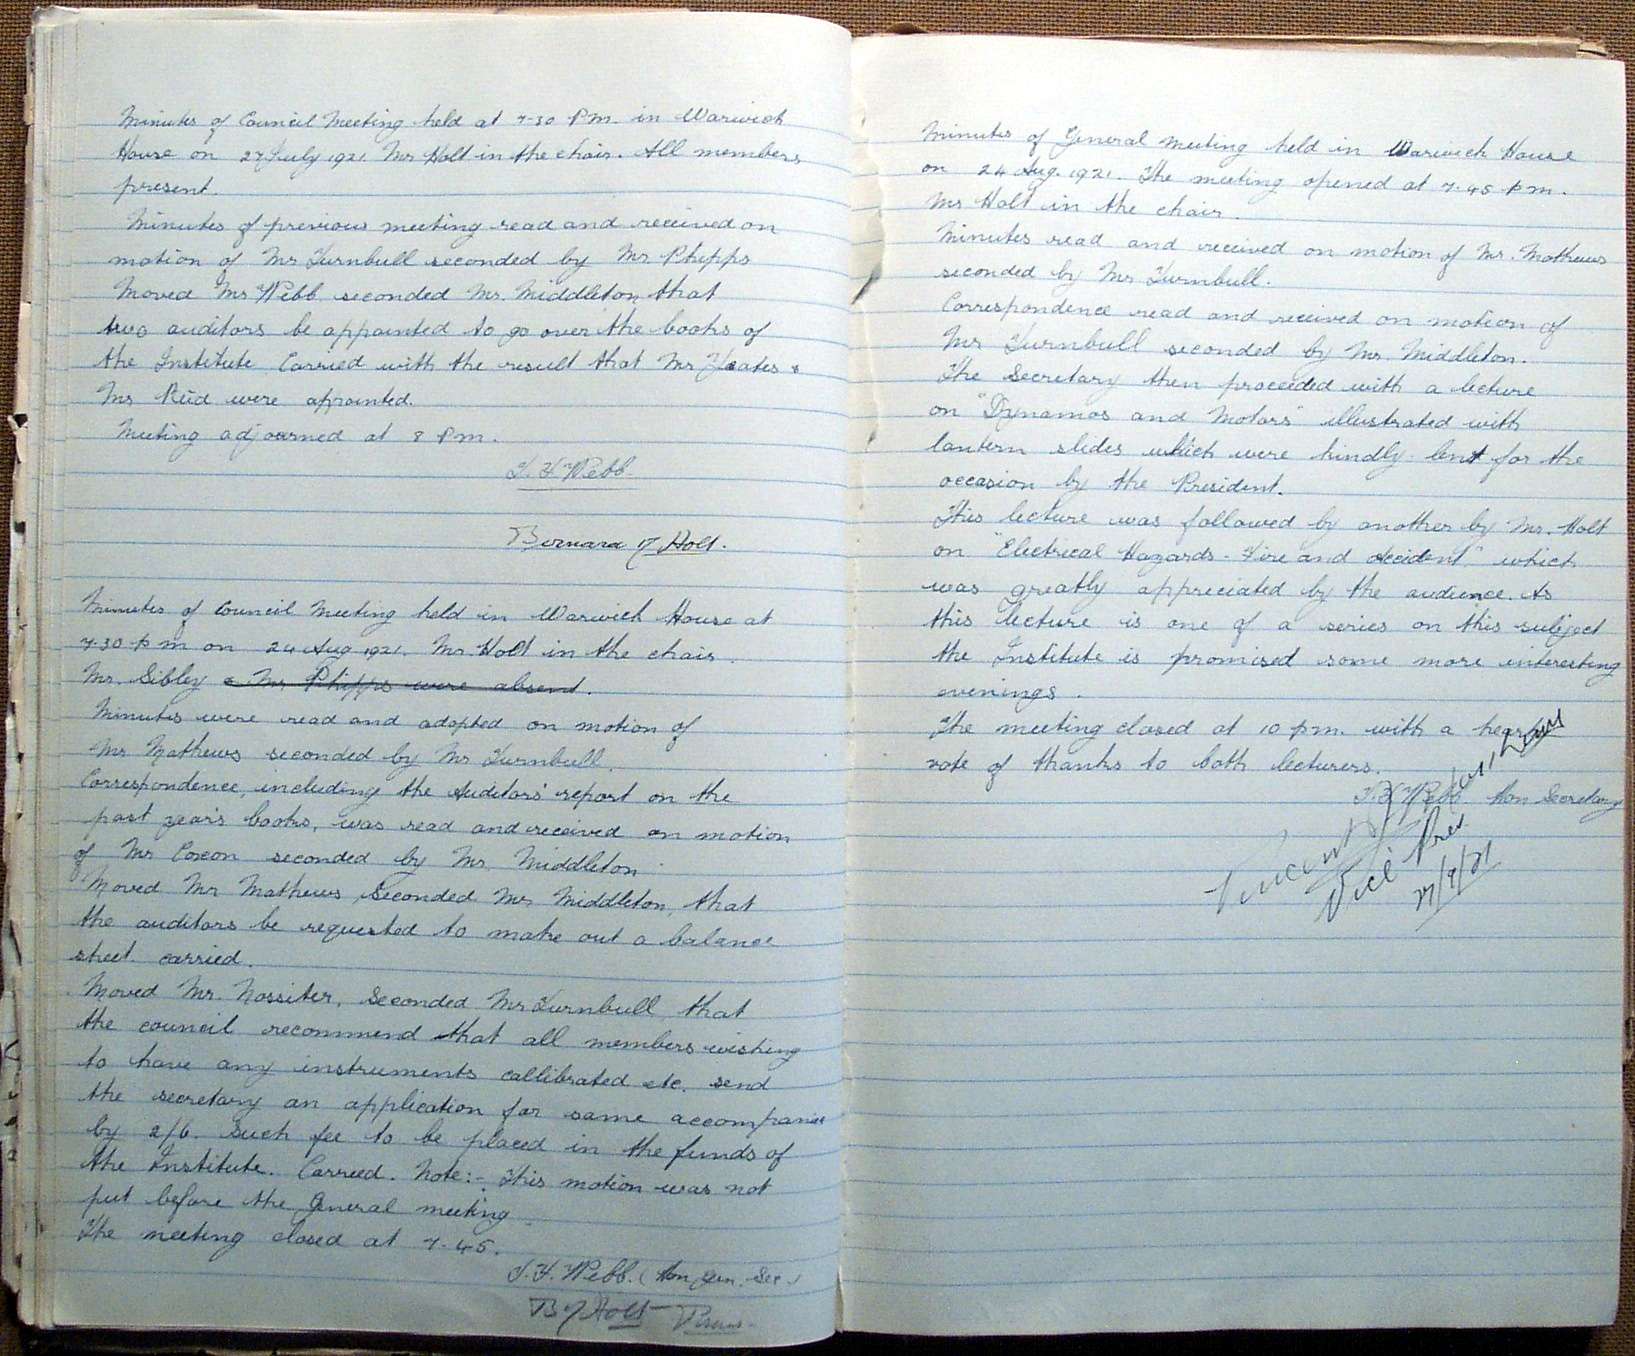 Minutes of Council Meeting held at 7-30 P.M. in Warwick
House on 27 July 1921 Mr Holt in the chair. All members
present.
Minutes of previous meeting read and received on
motion of Mr Turnbull seconded by Mr. Phipps
Moved Mr Webb seconded Mr. Middleton that
two auditors be appointed to go over the books of
the Institute Carried with the result that Mr Yeates &
Mr Reid were appointed.
Meeting adjourned at 8 P.m.
T. H Webb
Bernard Holt.
Minutes of Council Meeting held in Warwick House at
7-30 p m on 24 Aug 1921. Mr Holt in the chair.
Mr. Sibley & Mr Phipps were absent.
Minutes were read and adopted on motion of
Mr Mathews seconded by Mr Turnbull.
Correspondence, including the Auditors' report on the
past years books, was read and received on motion
of Mr Coxon seconded by Mr. Middleton
Moved Mr Mathews, Seconded Mr Middleton, that
the auditors be requested to make out a balance
sheet. carried.
Moved Mr. Nossiter, Seconded Mr Turnbull, that
the council recommend that all members wishing
to have any instruments callibrated etc. send
the secretary an application for same accompanied
by 2/6. Such fee to be placed in the funds of
the Institute. Carried. Note:- This motion was not
put before the General meeting.
The meeting closed at 7.45.
T. H. Webb. (Hon. Gen. Sec.)
B Holt
Minutes of General Meeting held in Warwick House
on 24 Aug. 1921. The meeting opened at 7.45 p m.
Mr Holt in the chair.
Minutes read and received on motion of Mr. Mathews
seconded by Mr Turnbull.
Correspondence read and received on motion of
Mr Turnbull seconded by Mr. Middleton.
The Secretary then proceeded with a lecture
on "Dynamos and Motors" illustrated with
lantern slides which were kindly lent for the
occasion by the President.
This lecture was followed by another by Mr. Holt
on "Electrical Hazards - Fire and Accident", which
was greatly appreciated by the audience. As
this lecture is one of a series on this subject
the Institute is promised some more interesting
evenings.
The meeting closed at 10 p.m. with a
vote of thanks to both lecturers.
T. H Webb Hon Secretary
Vincent
Vice Pres
27/9/21